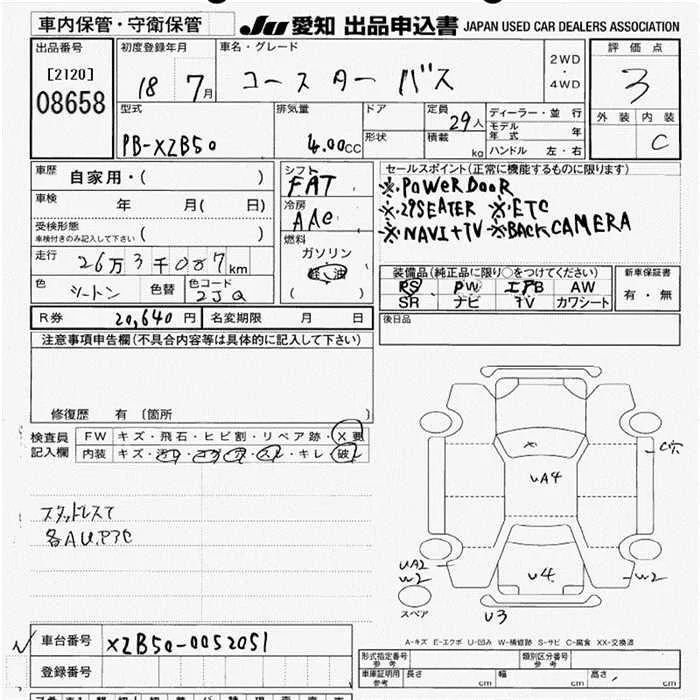 車内保管・守衛保管 JU 愛知 出品申込書 JAPAN USED CAR DEALERS ASSOCIATION
出品番号 初度登録年月 車名・グレード 評価点
[2120] 18 7月 コースターバス 2WD・4WD 3
08658
型式 排気量 ドア 定員 ディーラー・並行 外装 内装
29人 モデル年式 年
PB-XZB50 4.00CC 形状 積載 kg ハンドル 左・右 C
車歴 自家用・( ) シフト FAT セールスポイント(正常に機能するものに限ります)
※.POWER DOOR
車検 年 月( 日) 冷房 AAC ※.29SEATER ※ETC
受検形態 ※NAVI+TV ※BACK CAMERA
車検付きのみ記入して下さい( ) 燃料
ガソリン
走行 26万3千007km 軽油
( )
装備品(純正品に限り○をつけてください) 新車保証書
色 ツートン 色替 色コード 2JQ PS PW エアB AW 有・無
SR ナビ TV カワシート
R券 20,640円 名変期限 月 日 後日品
注意事項申告欄(不具合内容等は具体的に記入して下さい)
修復歴 有 〔箇所 〕
検査員 FW キズ・飛石・ヒビ割・リペア跡・X要
記入欄 内装 キズ・汚レ・コゲ・穴・スレ・キレ・破レ
C穴
×
UA4
スタッドレスて
UA2
W2
U4
W2
スペア
U3
A-キズ E-エクボ U-凹み W-補修跡 S-サビ C-腐食 XX-交換済
車台番号 XZB50-0052051
登録番号
形式指定番号 参考 類別区分番号 参考
車庫証明用 参考 長さ cm 幅 cm 高さ cm